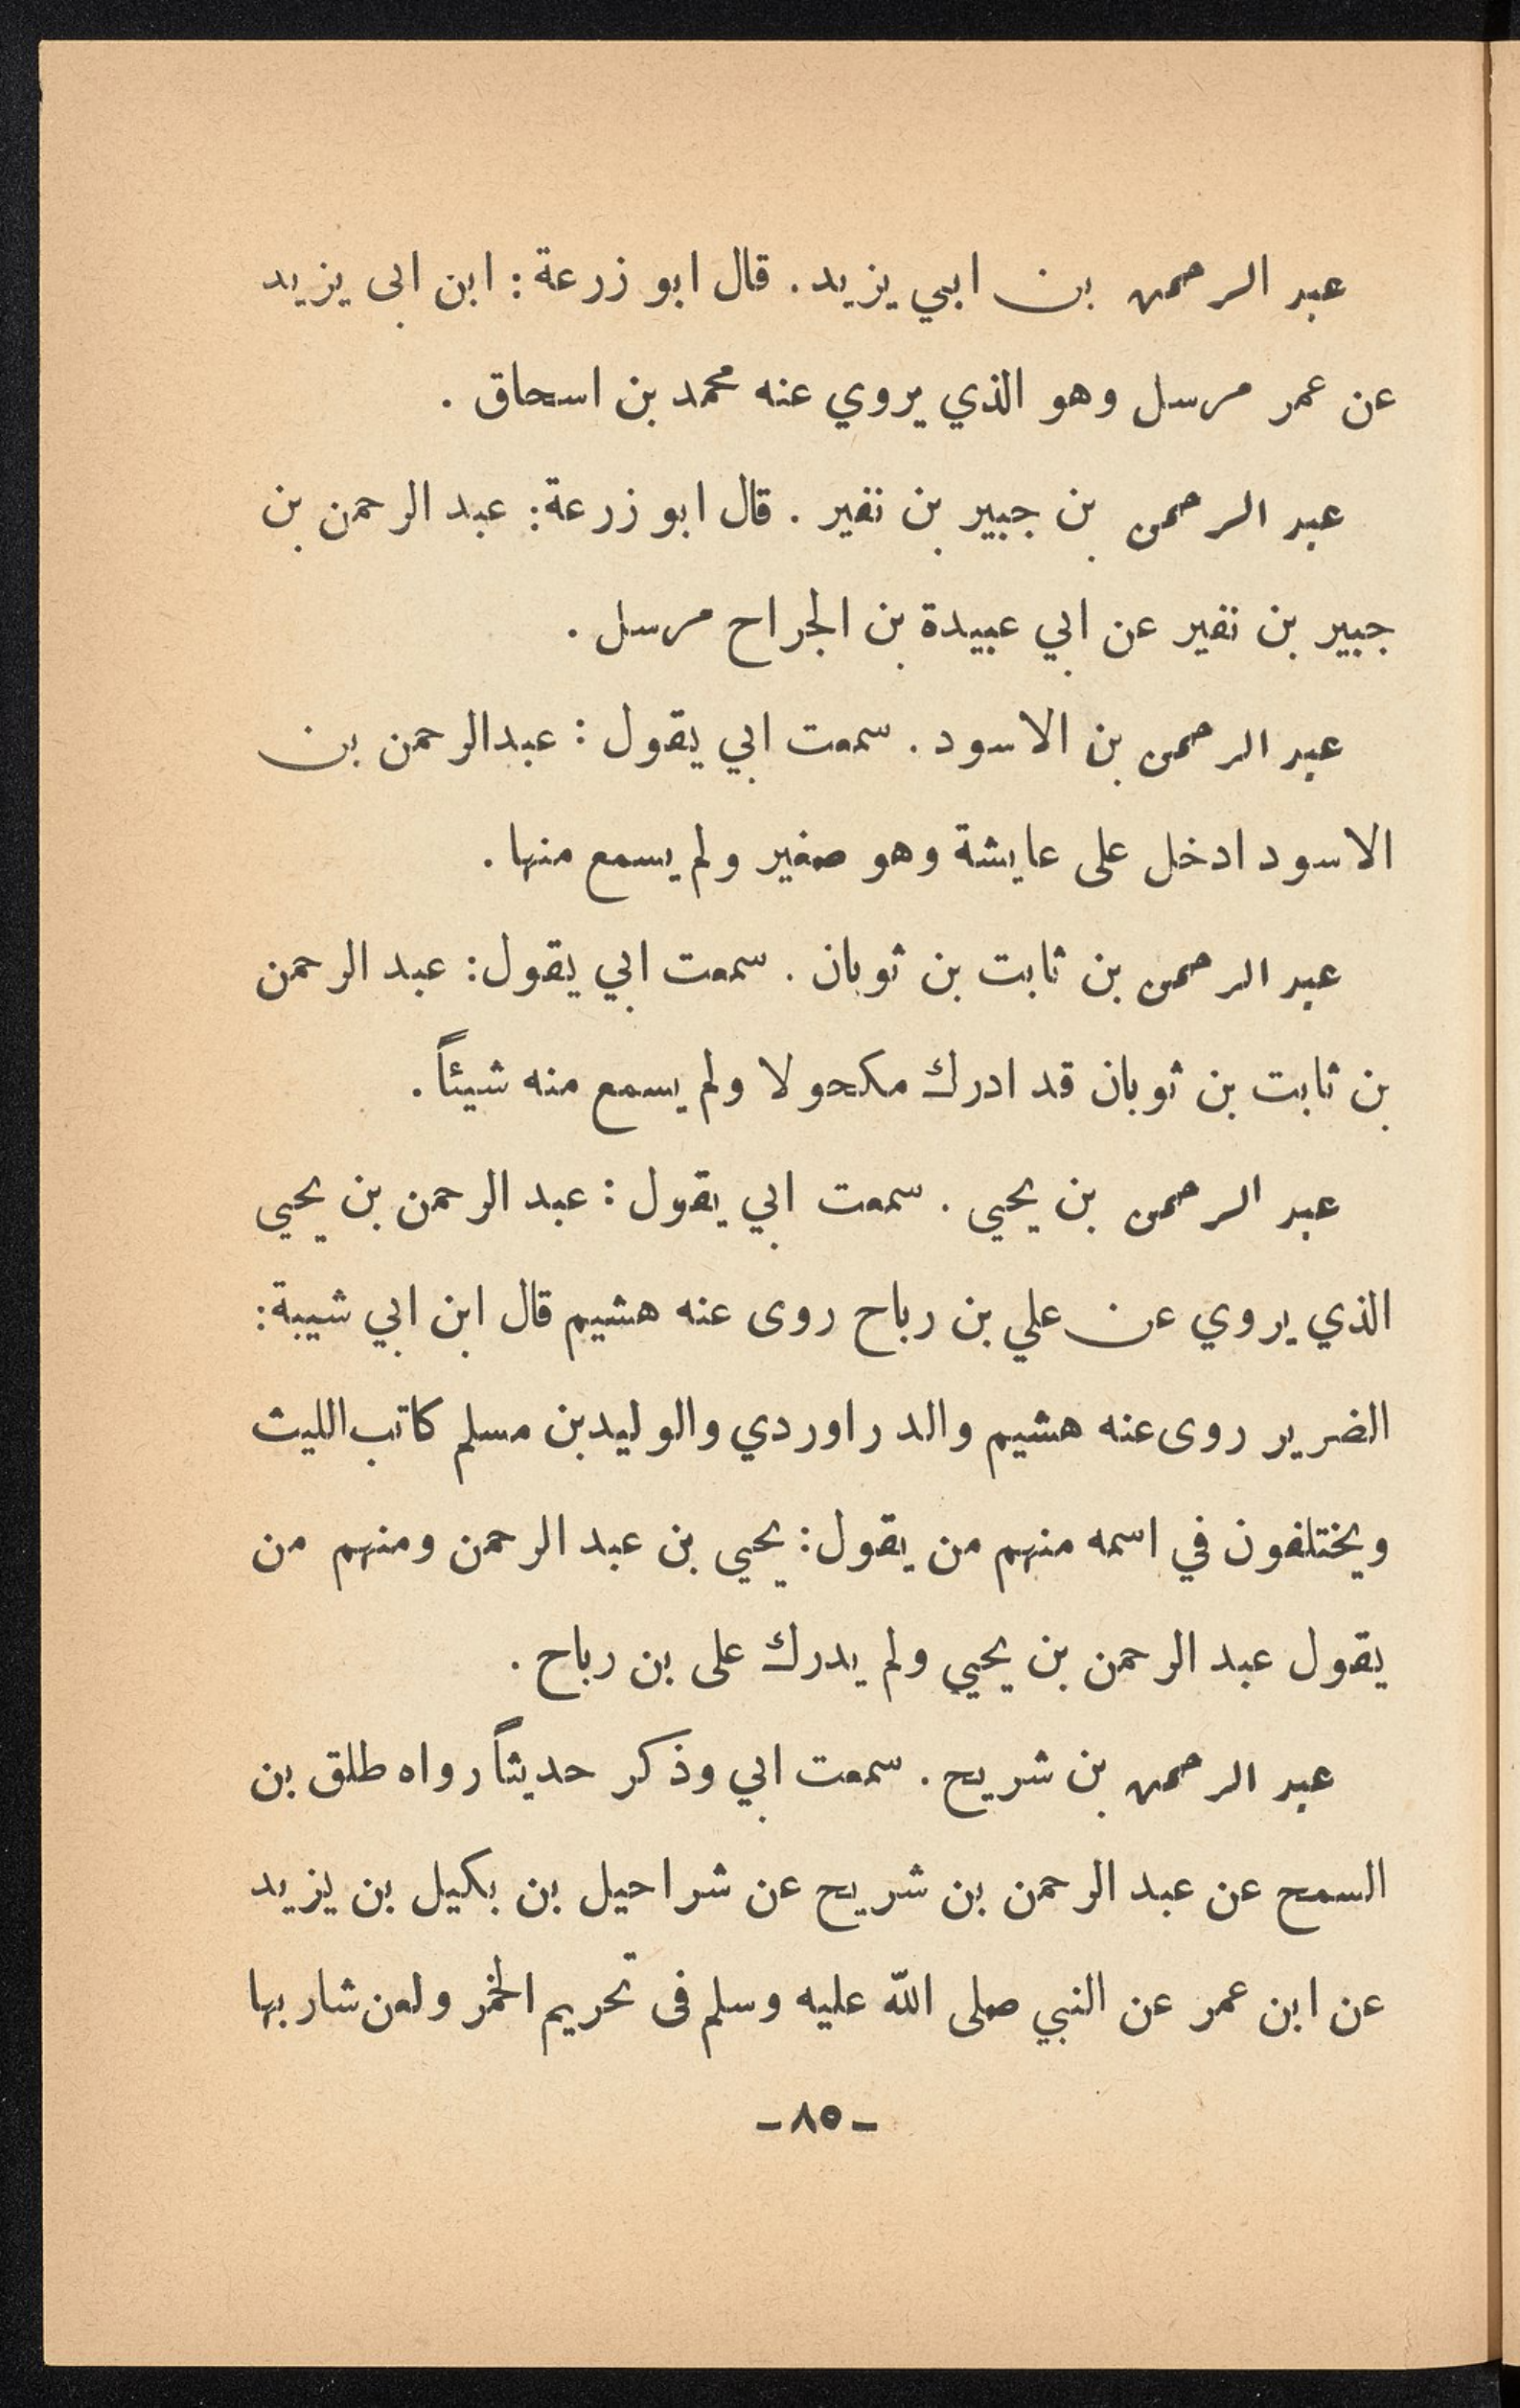 عبد الرحمن بن ابي يزيد . قال ابو زرعة : ابن ابى يزيد
عن عمر مرسل وهو الذي يروي عنه محمد بن اسحاق .
عبد الرحمن بن جبير بن نفير . قال ابو زرعة : عبد الرحمن بن
جبير بن نفير عن ابي عبيدة بن الجراح مرسل .
عبد الرحمن بن الاسود . سمعت ابي يقول : عبدالرحمن بن
الاسود ادخل على عايشة وهو صغير ولم يسمع منها .
عبد الرحمن بن ثابت بن ثوبان . سمعت ابي يقول : عبد الرحمن
بن ثابت بن ثوبان قد ادرك مكحولا ولم يسمع منه شيئاً .
عبد الرحمن بن يحيى . سمعت ابي يقول : عبد الرحمن بن يحيي
الذي يروي عن علي بن رباح روى عنه هشيم قال ابن ابي شيبة :
الضرير روى عنه هشيم والدراوردي والوليدبن مسلم كاتب الليث
ويختلفون في اسمه منهم من يقول : يحيى بن عبد الرحمن ومنهم من
يقول عبد الرحمن بن يحيي ولم يدرك على بن رباح .
عبد الرحمن بن شريح . سمعت ابي وذكر حديثاً رواه طلق بن
السمح عن عبد الرحمن بن شريح عن شراحيل بن بكيل بن يزيد
عن ابن عمر عن النبي صلى الله عليه وسلم فى تحريم الخمر ولعن شاربها
ـ ٨٥ ـ